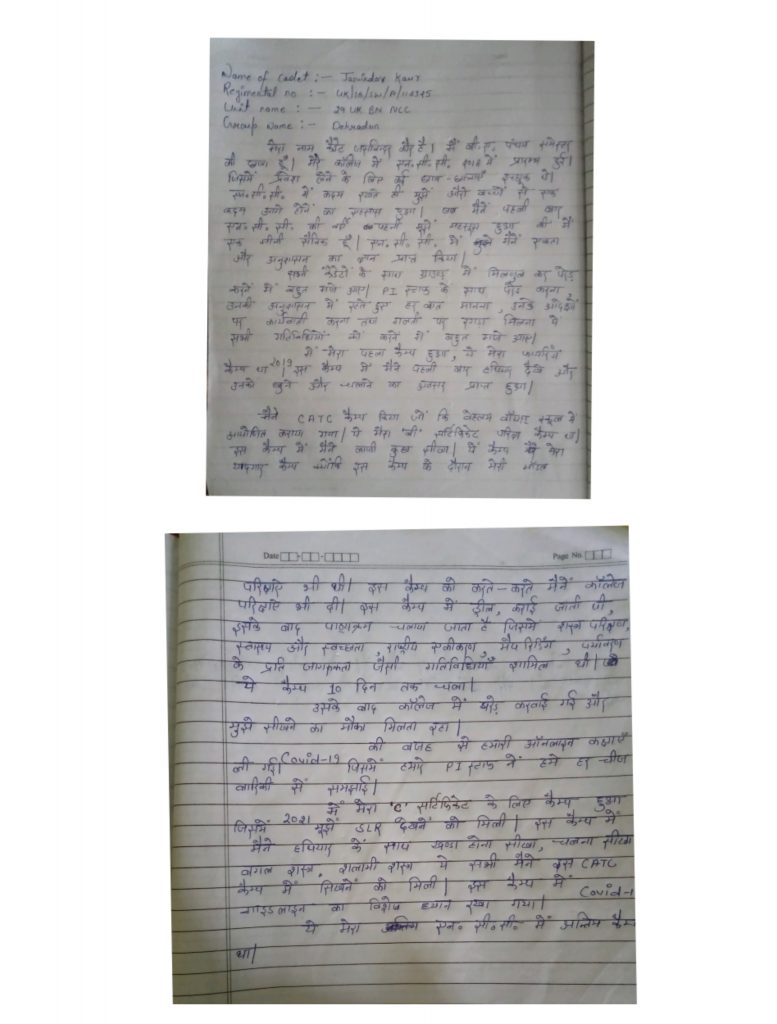 Name of Cadet :- Jaswinder Kaur
Regimental no :-
Unit name :- 29 UK BN NCC
Group Name :- Dehradun
मेरा नाम कैडेट जसविन्दर कौर है। मैं बी.ए. पंचम सेमेस्टर
की छात्रा हूँ। मेरे कॉलेज में एन॰सी॰सी॰ में प्रारम्भ हुई।
जिसमें प्रवेश लेने के लिए कई छात्र-छात्राएँ इच्छुक थे।
एन॰सी॰सी॰ में कदम रखते ही मुझे औरो बच्चों से एक
कदम आगे होने का एहसास हुआ। जब मैंने पहली बार
एन॰सी॰सी॰ की वर्दी पहनी मुझे महसूस हुआ की मैं
एक सैनिक हूँ। एन॰सी॰सी॰ में मैंने एकता
और अनुशासन का ज्ञान प्राप्त किया।
सभी कैडेटों के साथ ग्राउण्ड में मिलजुल कर परेड
करने में बहुत मजे आए। PI स्टाफ के साथ परेड करना
उनकी अनुशासन में रहते हुए हर बात मानना, उनके आदेशों
पर कार्यवाही करना तथा गलती पर रगड़ा मिलना ये
सभी गतिविधियों को करने में बहुत मजे आए।
में मेरा पहला कैम्प हुआ, ये मेरा फायरिंग
कैम्प था 2019। इस कैम्प में मैंने पहली बार हथियार देखे और
उनको छुने और चलाने का अवसर प्राप्त हुआ।
मैंने CATC कैम्प किया जो कि स्कूल में
आयोजित कराया गया। ये मेरा 'बी' सर्टिफिकेट कैम्प था।
इस कैम्प में मैंने काफी कुछ सीखा। ये कैम्प मेरा
यादगार कैम्प क्योंकि इस कैम्प के दौरान मेरी
Date
Page No.
परिक्षाऐ भी थी। इस कैम्प को करते-करते मैंने कॉलेज
परिक्षाऐ भी दी। इस कैम्प में ड्रील, कराई जाती थी,
इसके बाद पाठ्यक्रम चलाया जाता है जिसमें शस्त्र परिक्षण,
स्वास्थ्य और स्वच्छता, राष्ट्रीय एकीकरण, मैप रिडिंग, पर्यावरण
के प्रति जागरूकता जैसी गतिविधियाँ शामिल थी।
ये कैम्प 10 दिन तक चला।
उसके बाद कॉलेज में परेड करवाई गई और
मुझे सीखने का मौका मिलता रहा।
की वजह से हमारी ऑनलाइन कक्षाएँ
ली गई। Covid-19 जिसमें हमारे PI स्टाफ नें हमे हर चीज
बारिकी से समझाई।
में मेरा 'C' सर्टिफिकेट के लिए कैम्प हुआ
जिसमें 2021 मुझे SLR देखनें को मिली। इस कैम्प में
मैंने हथियार के साथ खड़ा होना सीखा, चलना सीखा
बगल शस्त्र, सलामी शस्त्र ये सभी मैंने इस CATC
कैम्प में सिखनें को मिली। इस कैम्प में Covid-1
गाइडलाइन का विशेष ध्यान रखा गया।
ये मेरा एन॰ सी॰सी॰ में अन्तिम कैम्प
था।